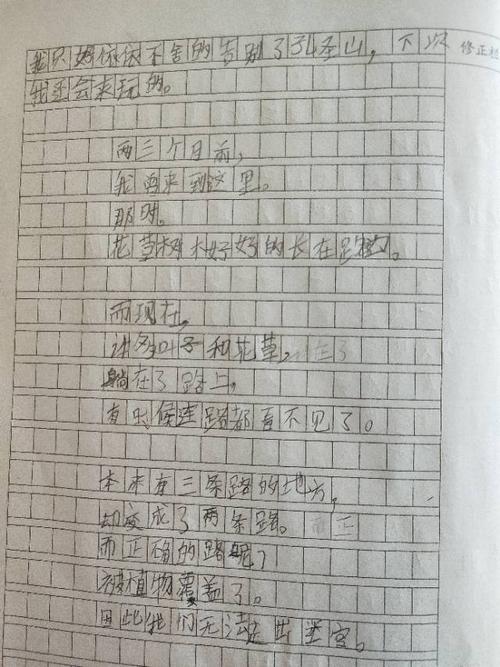 我只好依依不舍的告别了孔圣山，下次 修正栏
我还会来玩的。
两三个月前，
我曾来到这里。
那时。
花草树木好好的长在路边。
而现在，
许多叶子和花草，
躺在了路上，
有时候连路都看不见了。
本来有三条路的地方，
却变成了两条路。
而正确的路呢？
被植物覆盖了。
因此我们无法走出